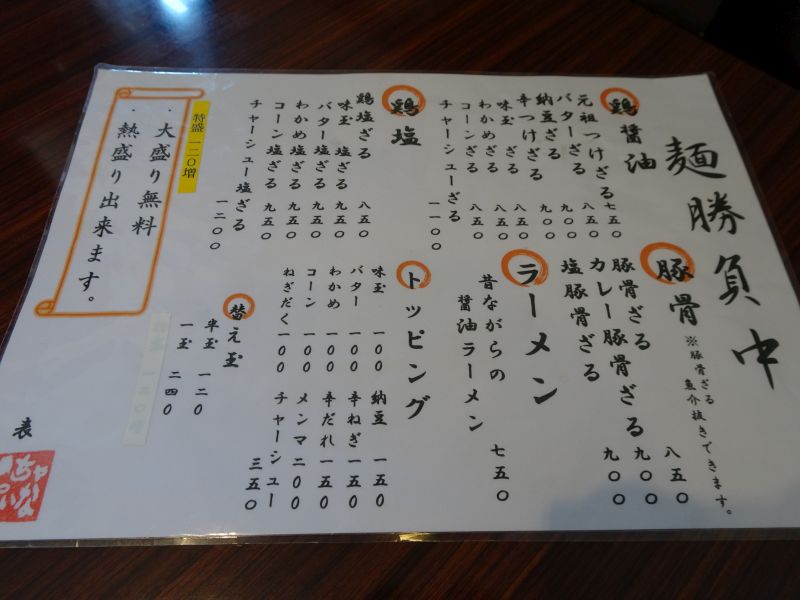 麺勝負中
鶏醤油
元祖つけざる 七五〇
バターざる 八五〇
納豆ざる 九〇〇
辛つけざる 九〇〇
味玉ざる 八五〇
わかめざる 八五〇
コーンざる 八五〇
チャーシューざる 一一〇〇
鶏塩
鶏塩ざる 八五〇
味玉 塩ざる 九五〇
バター塩ざる 九五〇
わかめ塩ざる 九五〇
コーン塩ざる 九五〇
チャーシュー塩ざる 一二〇〇
豚骨
※豚骨ざる
魚介抜きできます。
豚骨ざる 八五〇
カレー豚骨ざる 九〇〇
塩豚骨ざる 九〇〇
ラーメン
昔ながらの
醤油ラーメン 七五〇
トッピング
味玉 一〇〇
バター 一〇〇
わかめ 一〇〇
コーン 一〇〇
ねぎだく 一〇〇
納豆 一五〇
辛ねぎ 一五〇
辛だれ 一五〇
メンマ 二〇〇
チャーシュー 三五〇
替え玉
半玉 一二〇
一玉 二四〇
特盛 一二〇増
・大盛り無料
・熱盛り出来ます。
表